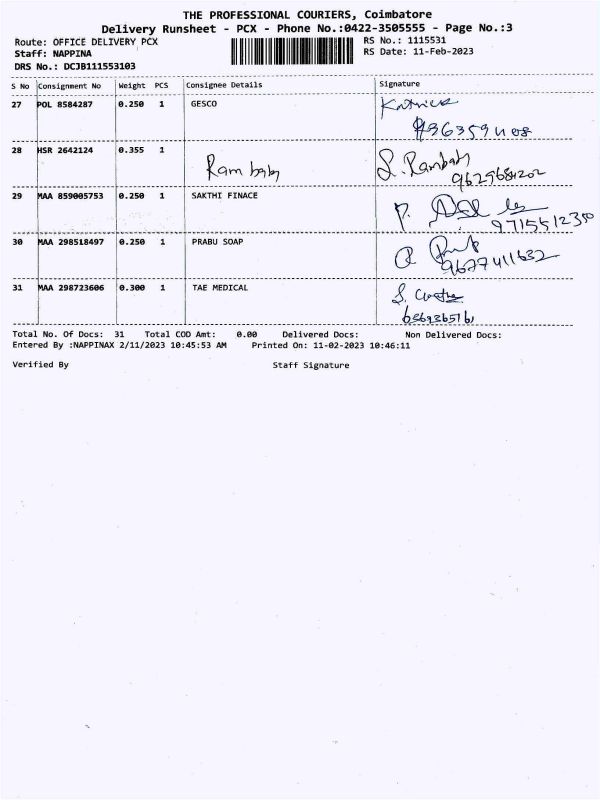 THE PROFESSIONAL COURIERS, Coimbatore
Delivery Runsheet - PCX - Phone No.:0422-3505555 - Page No.:3
Route: OFFICE DELIVERY PCX
RS No.: 1115531
Staff: NAPPINA
RS Date: 11-Feb-2023
DRS No.: DCJB111553103
S No Consignment No Weight PCS Consignee Details Signature
27 POL 8584287 0.250 1 GESCO
28 HSR 2642124 0.355 1
Ram baby
29 MAA 859005753 0.250 1 SAKTHI FINACE
30 MAA 298518497 0.250 1 PRABU SOAP
9627411632
31 MAA 298723606 0.300 1 TAE MEDICAL
Total No. Of Docs: 31 Total COD Amt: 0.00 Delivered Docs: Non Delivered Docs:
Entered By :NAPPINAX 2/11/2023 10:45:53 AM Printed On: 11-02-2023 10:46:11
Verified By Staff Signature